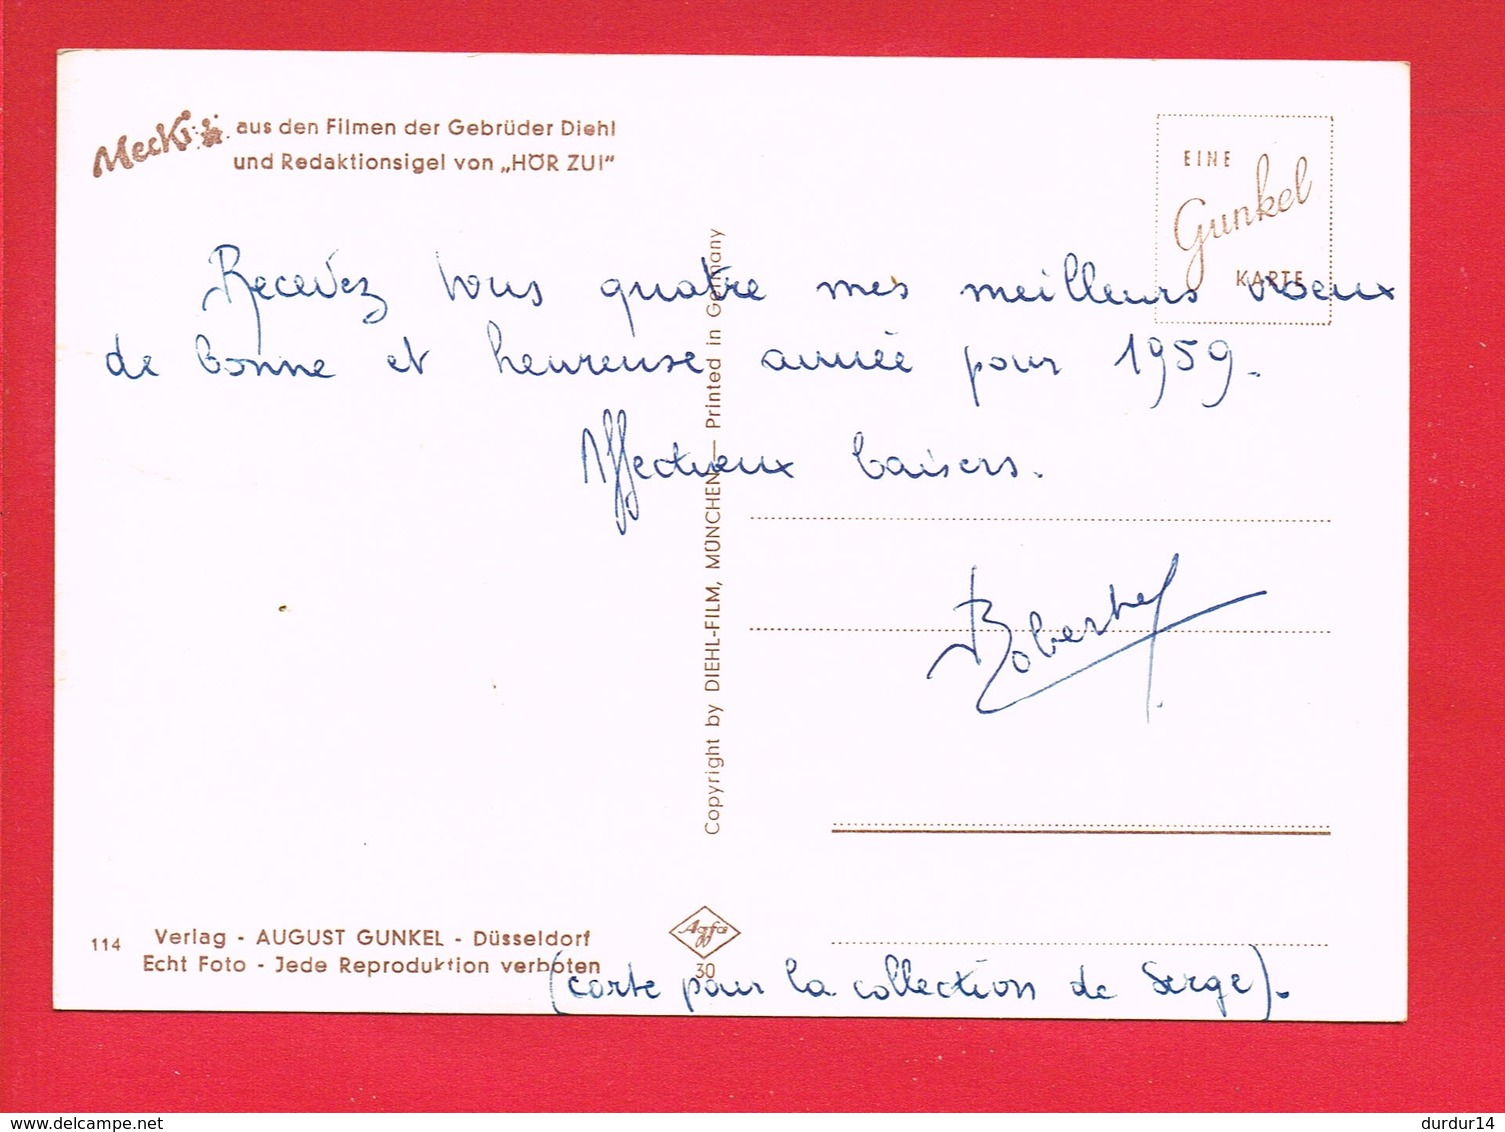 Mecki aus den Filmen der Gebrüder Diehl
und Redaktionsigel von „HÖR ZU!“
EINE
Gunkel
KARTE
Recevez tous quatre mes meilleurs voeux
de bonne et heureuse année pour 1959.
Affectueux baisers.
Copyright by DIEHL-FILM, MÜNCHEN — Printed in Germany
114
Verlag - AUGUST GUNKEL - Düsseldorf
Echt Foto - Jede Reproduktion verboten
Agfa
30
(carte pour la collection de Serge).
www.delcampe.net
durdur14